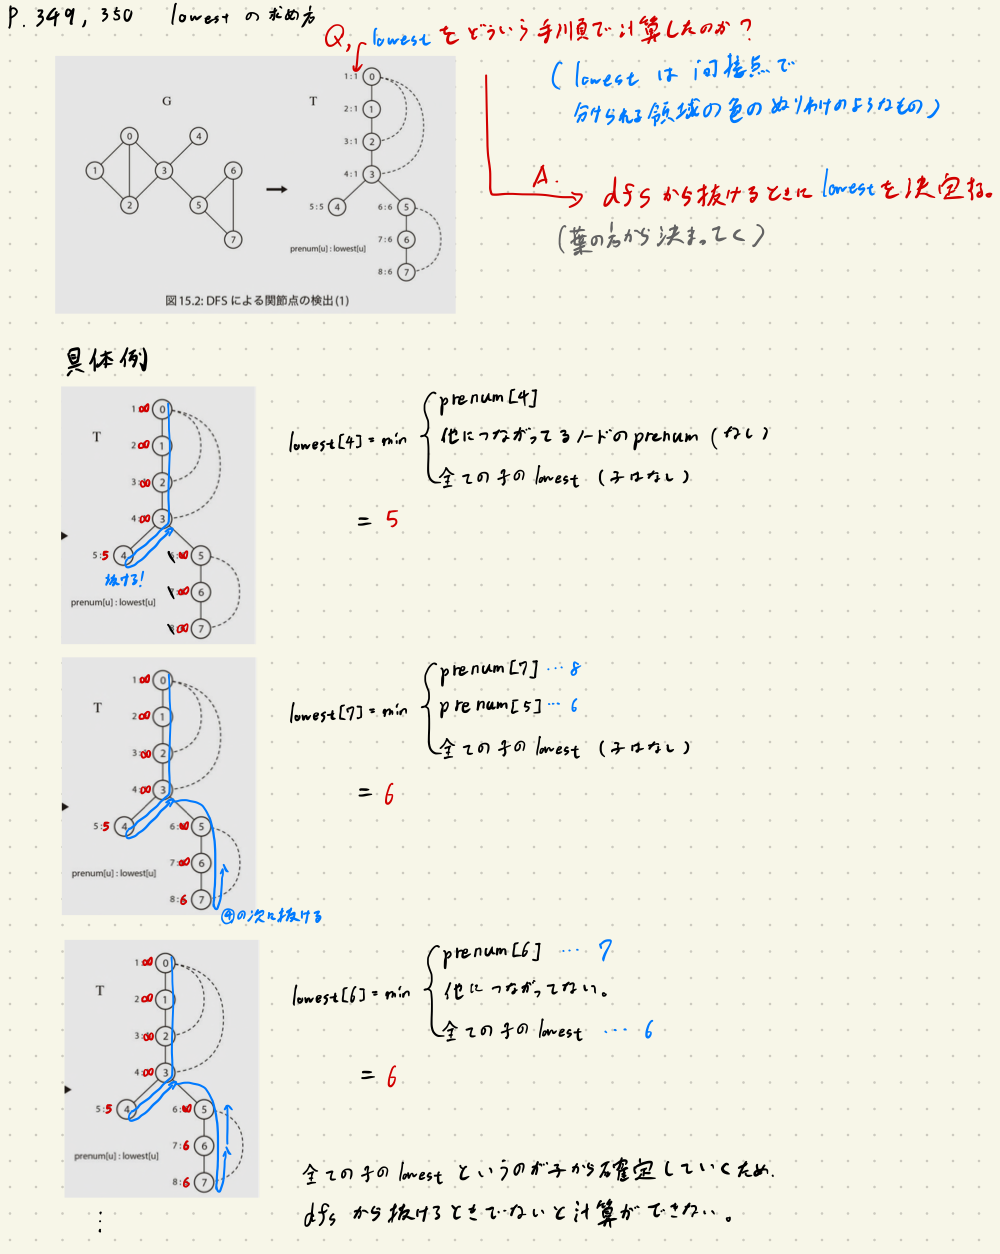 P. 349, 350 lowest の求め方
Q, lowest をどういう手順で計算したのか?
(lowest は 間接点で
分けられる領域の色のぬりわけのようなもの)
A.
dfs から抜けるときに lowest を決定する。
(葉の方から決まってく)
G
T
0
1
2
3
4
5
6
7
1:1 0
2:1 1
3:1 2
4:1 3
5:5 4
6:6 5
7:6 6
8:6 7
prenum[u] : lowest[u]
図15.2: DFS による関節点の検出(1)
具体例
T
1:∞ 0
2:∞ 1
3:∞ 2
4:∞ 3
5:5 4
∞ 5
∞ 6
∞ 7
抜ける!
prenum[u] : lowest[u]
lowest[4] = min
prenum[4]
他につながってるノードのprenum (なし)
全ての子のlowest (子はなし)
= 5
T
1:∞ 0
2:∞ 1
3:∞ 2
4:∞ 3
5:5 4
6:∞ 5
7:∞ 6
8:6 7
prenum[u] : lowest[u]
④の次に抜ける
lowest[7] = min
prenum[7] … 8
prenum[5] … 6
全ての子のlowest (子はなし)
= 6
T
1:∞ 0
2:∞ 1
3:∞ 2
4:∞ 3
5:5 4
6:∞ 5
7:6 6
8:6 7
prenum[u] : lowest[u]
lowest[6] = min
prenum[6] … 7
他につながってない。
全ての子のlowest … 6
= 6
全ての子のlowest というのが子から確定していくため.
dfs から抜けるときでないと計算ができない。
⋮